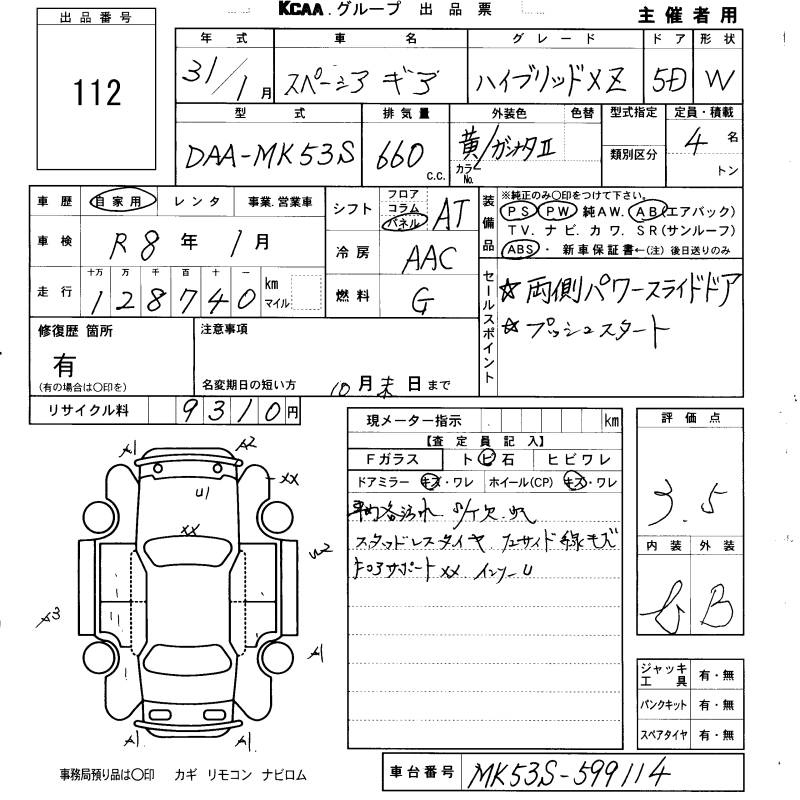 KCAA.グループ 出品票
主催者用
出品番号
112
年式 車名 グレード ドア 形状
31/1月 スペーシア ギア ハイブリッドXZ 5D W
型式 排気量 外装色 色替 型式指定 定員・積載
DAA-MK53S 660 c.c. 黄/ガンメタⅡ カラーNo. 類別区分 4名
トン
車歴 自家用 レンタ 事業.営業車
シフト フロア コラム パネル AT
装備品 ※純正のみ〇印をつけて下さい。
PS PW 純AW. AB(エアバック)
TV. ナビ. カワ. SR(サンルーフ)
ABS・ 新車保証書←(注) 後日送りのみ
車検 R8年 1月
冷房 AAC
走行 十万 万 千 百 十 一
128740 km マイル
燃料 G
セールスポイント
☆両側パワースライドドア
☆プッシュスタート
修復歴 箇所
有
(有の場合は〇印を)
注意事項
名変期日の短い方 10月末日まで
リサイクル料 9310円
現メーター指示 km
【査定員記入】
Fガラス トビ石 ヒビワレ
ドアミラー キズ・ワレ ホイール(CP) キズ・ワレ
スタッドレスタイヤ
サポートXX インナーU
評価点
3.5
内装 外装
B
A1 A2
XX
U1
XX
U2
A3
A1
A1 A2
ジャッキ工具 有・無
パンクキット 有・無
スペアタイヤ 有・無
事務局預り品は〇印 カギ リモコン ナビロム
車台番号 MK53S-599114